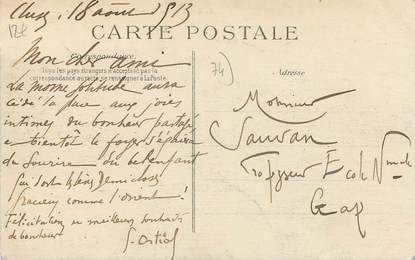 Cluses, 18 août 1913
12€
CARTE POSTALE
Correspondance
Tous les pays étrangers n'acceptent pas la
correspondance au recto se renseigner à la Poste
Adresse
74)
Mon cher ami
La morne solitude aura
cédé la place aux joies
intimes du bonheur partagé
et bientôt le foyer s'égaiera
du sourire du bel enfant
qui dort
gracieux comme l'orient !
Félicitations et meilleurs souhaits
de bonheur
Monsieur
Sauvan
Professeur Ecole Normale
Gap